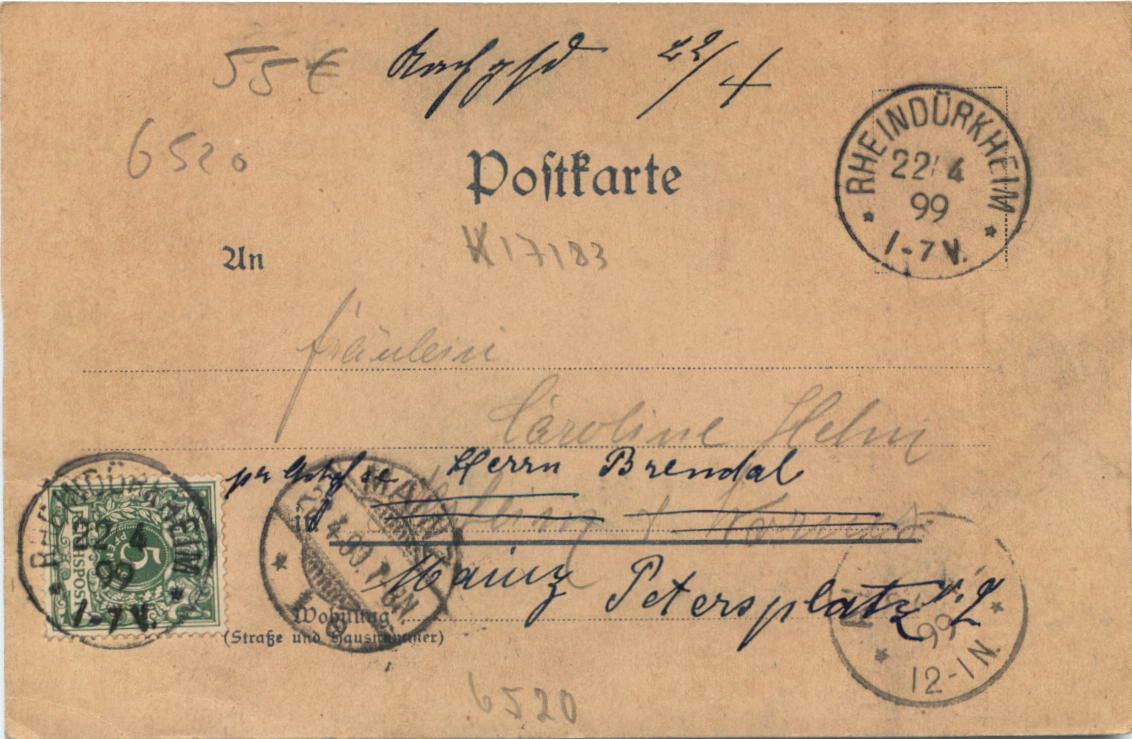 55 € Nachgsd 22/4
6520
RHEINDÜRKHEIM
22/4
99
1-7 V.
Postkarte
K17183
An
Fräulein
Caroline Helm
Herrn Brendal
Worms
in
Mainz Petersplatz No. 2
Wohnung
(Straße und Hausnummer)
RHEINDÜRKHEIM
22 4
99
1-7 V.
5
PFENNIG
REICHSPOST
MAINZ
4.99.
99
12-1N.
6520